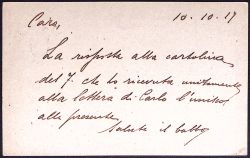 Caro, 10-10-17
La risposta alla cartolina
del 7. che ho ricevuta unitamente
alla lettera di Carlo l'unisco
alla presente.
Saluti il